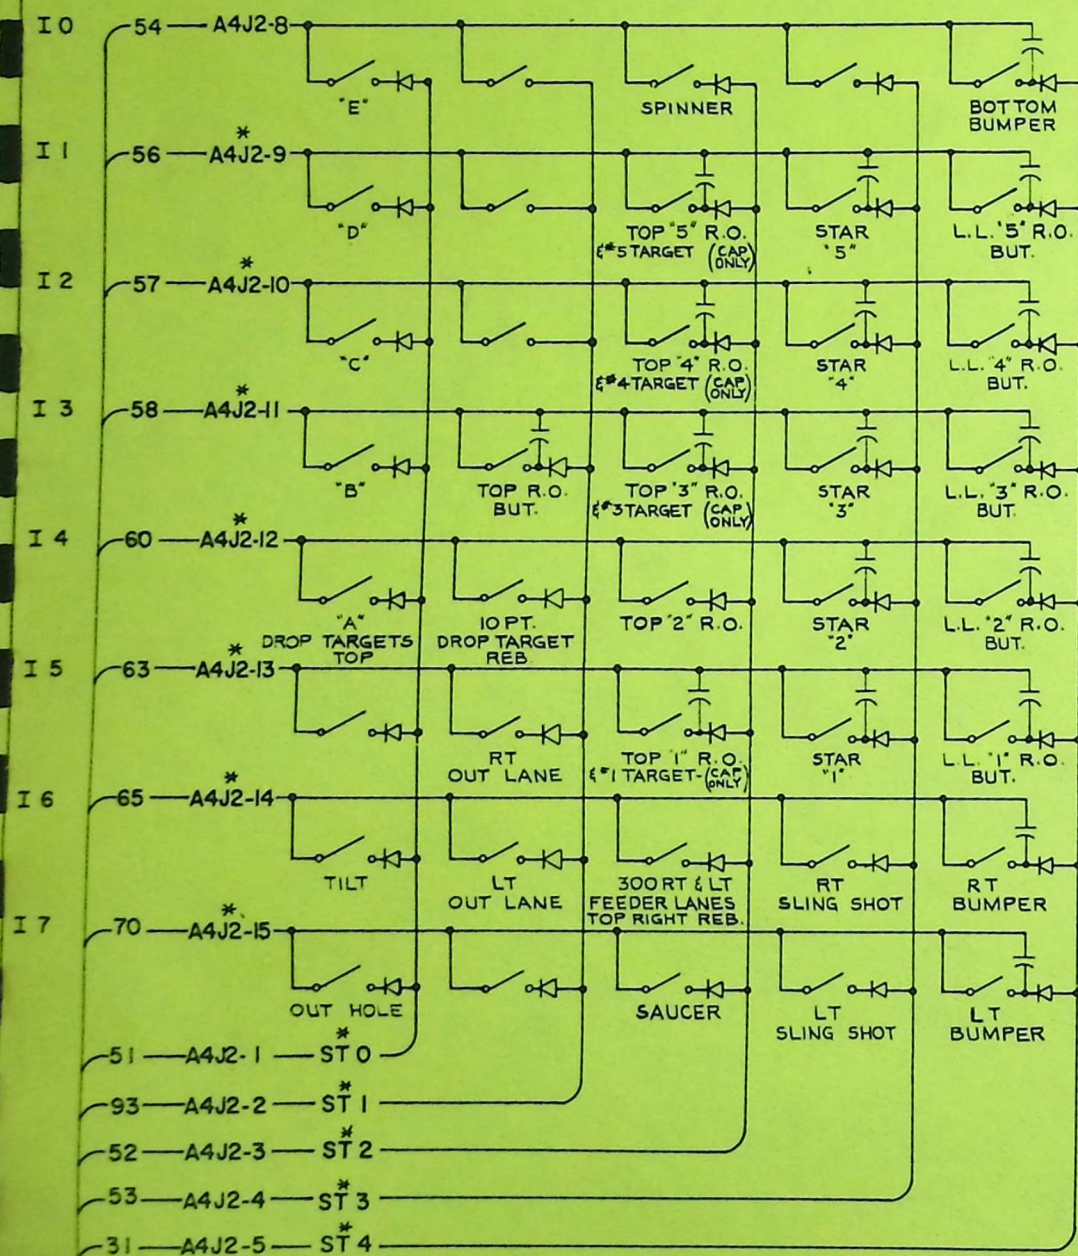 I 0 54 A4J2-8
"E" SPINNER BOTTOM BUMPER
*
I 1 56 A4J2-9
"D" TOP "5" R.O. & #5 TARGET (CAP ONLY) STAR "5" L.L. "5" R.O. BUT.
*
I 2 57 A4J2-10
"C" TOP "4" R.O. & #4 TARGET (CAP ONLY) STAR "4" L.L. "4" R.O. BUT.
*
I 3 58 A4J2-11
"B" TOP R.O. BUT. TOP "3" R.O. & #3 TARGET (CAP ONLY) STAR "3" L.L. "3" R.O. BUT.
*
I 4 60 A4J2-12
"A" DROP TARGETS TOP 10 PT. DROP TARGET REB TOP "2" R.O. STAR "2" L.L. "2" R.O. BUT.
*
I 5 63 A4J2-13
RT OUT LANE TOP "1" R.O. & #1 TARGET-(CAP ONLY) STAR "1" L.L. "1" R.O. BUT.
*
I 6 65 A4J2-14
TILT LT OUT LANE 300 RT & LT FEEDER LANES TOP RIGHT REB. RT SLING SHOT RT BUMPER
*
I 7 70 A4J2-15
OUT HOLE SAUCER LT SLING SHOT LT BUMPER
*
51 A4J2-1 ST 0
*
93 A4J2-2 ST 1
*
52 A4J2-3 ST 2
*
53 A4J2-4 ST 3
*
31 A4J2-5 ST 4